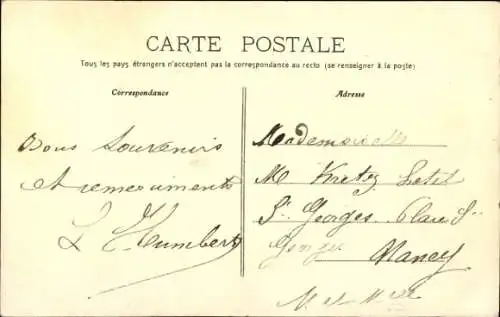 CARTE POSTALE
Tous les pays étrangers n'acceptent pas la correspondance au recto (se renseigner à la poste)
Correspondance
Bons Souvenirs
et remerciements
L. Humbert
Adresse
Mademoiselle
M
St Georges
Nancy
M. et M elle